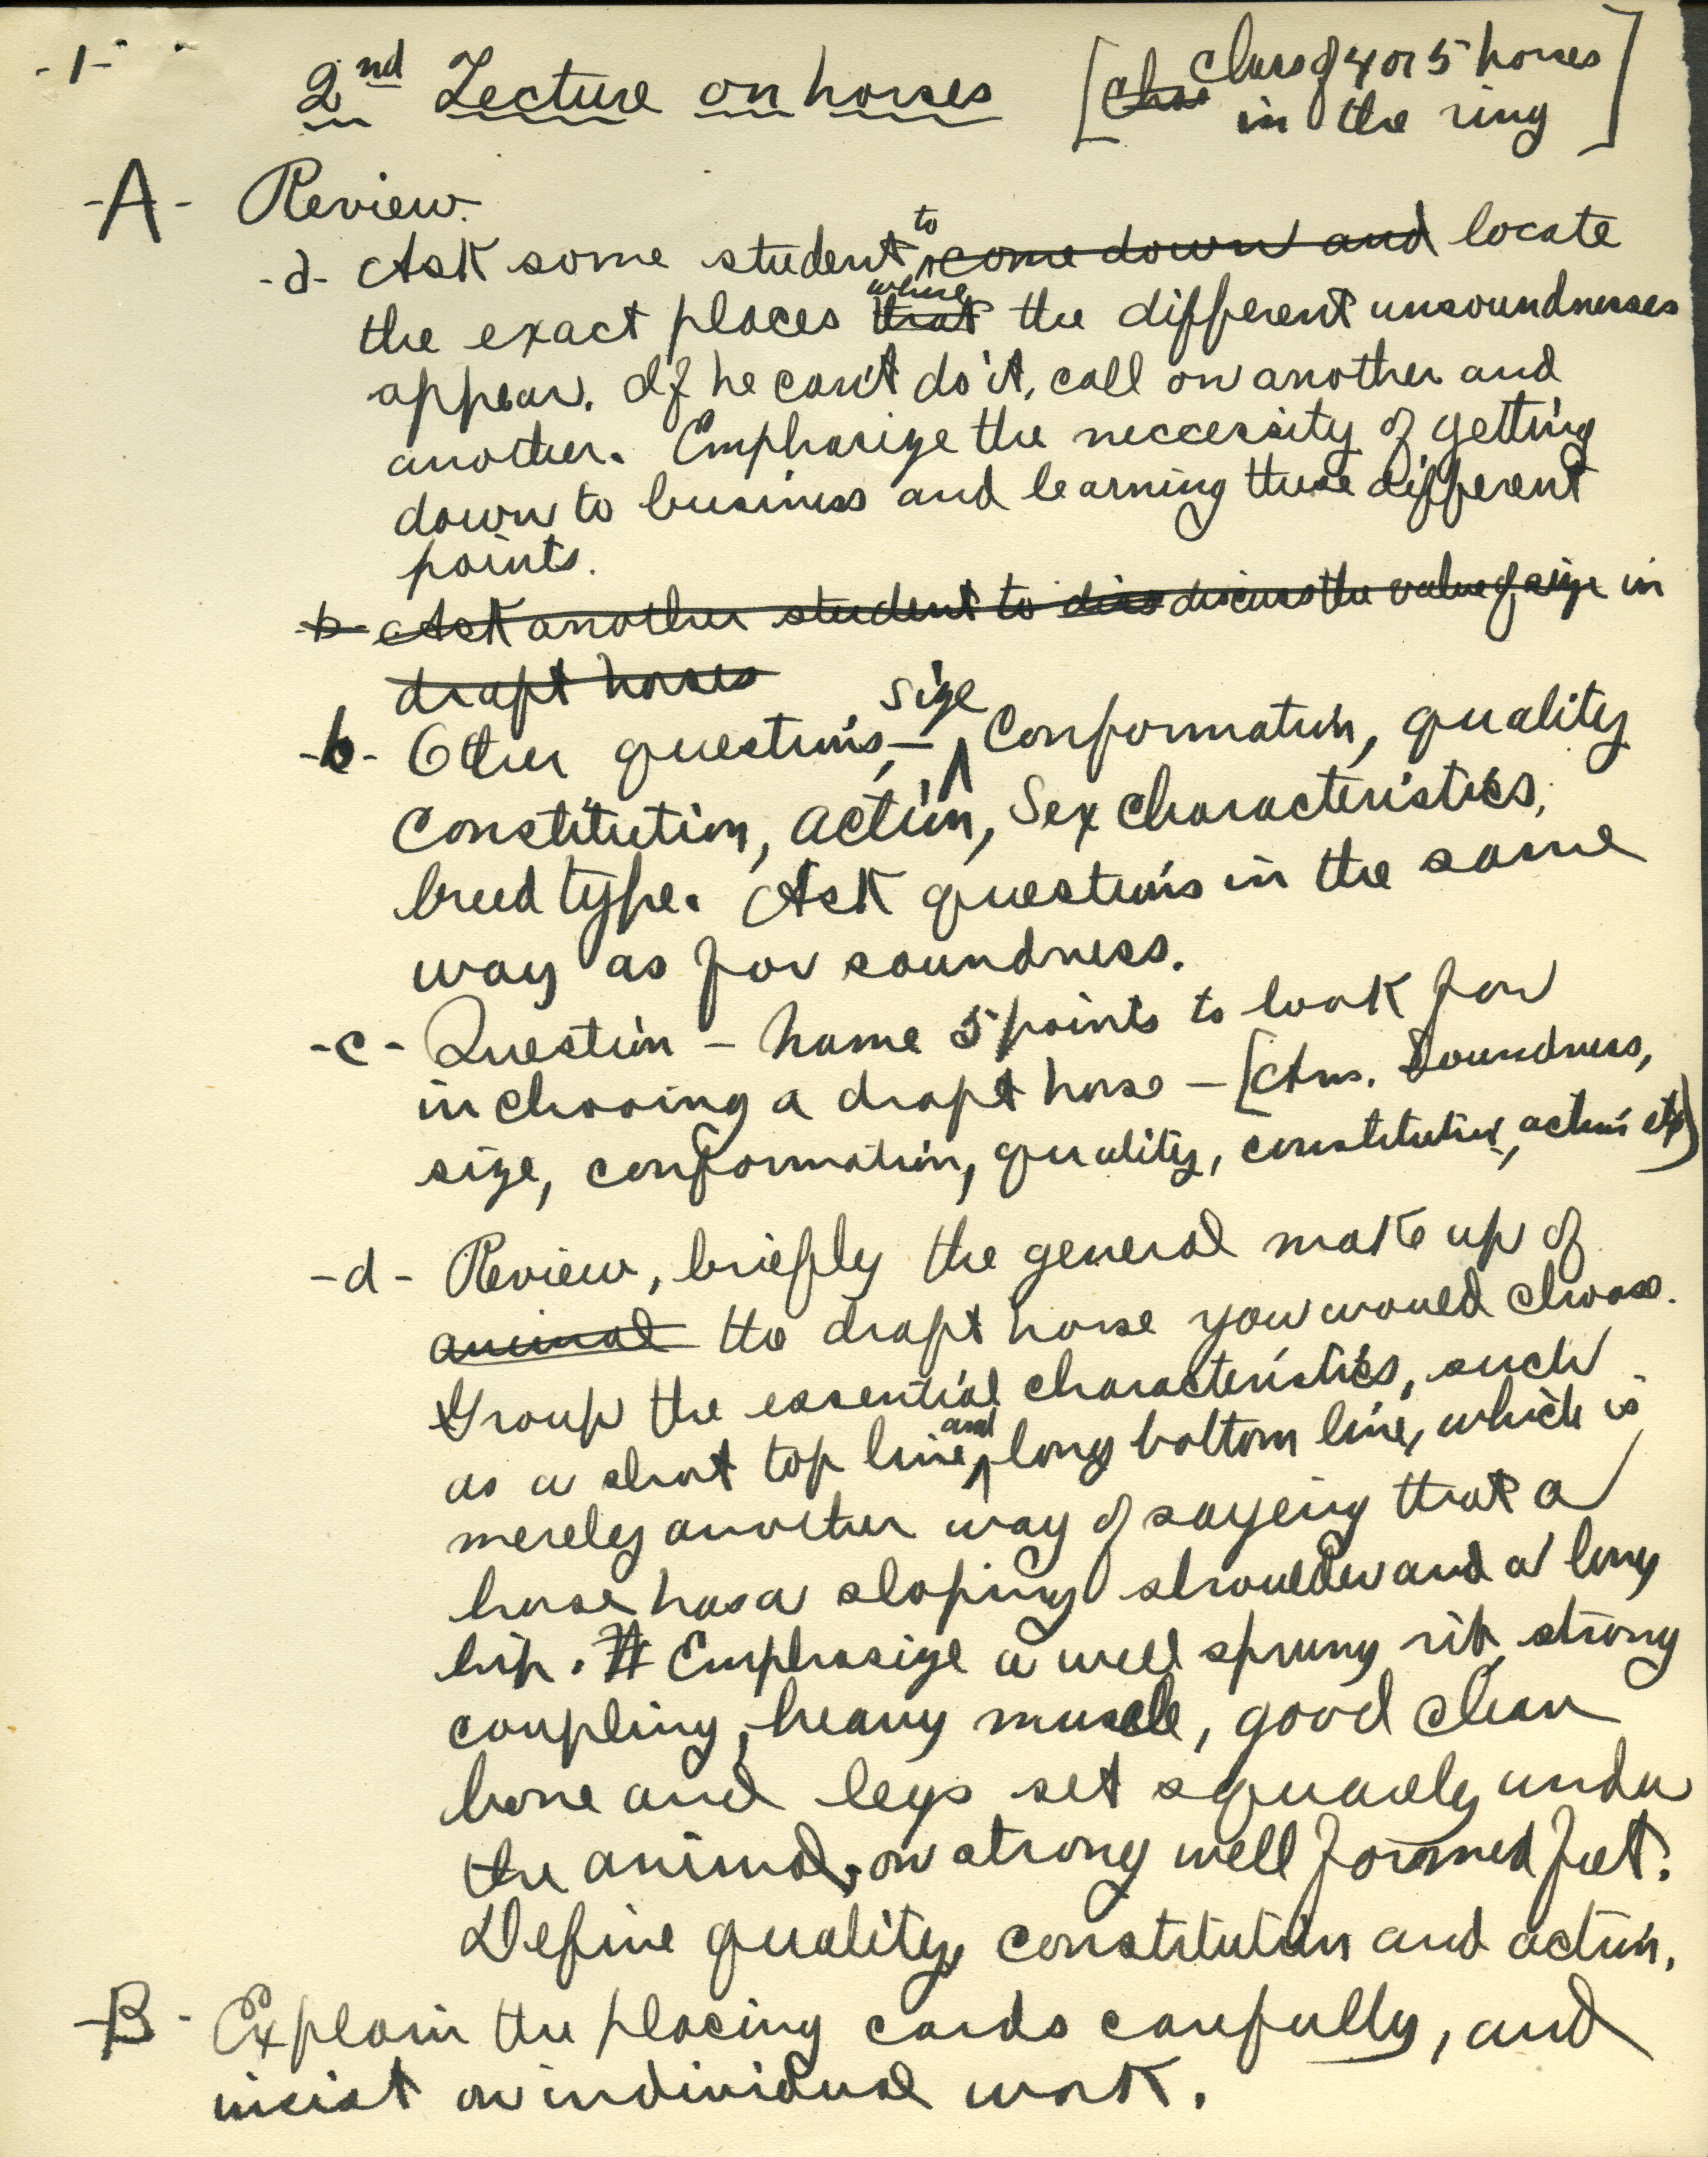 -1-
2nd Lecture on horses [~~clas~~ class of 4 or 5 horses
in the ring]
-A- Review.
-a- Ask some student to ~~come down and~~ locate
the exact places ~~that~~ where the different unsoundnesses
appear. If he can't do it, call on another and
another. Emphasize the neccessity of getting
down to business and learning these different
points.
~~-b- Ask another student to diss discuss the value of size~~ in
~~draft horses~~
-b- Other questions,- size Conformation, quality
Constitution, action, Sex characteristics,
breed type. Ask questions in the same
way as for soundness.
-c- Question - name 5 points to look for
in choosing a draft horse - [Ans. Soundness,
size, conformation, quality, constitution, action etc)
-d- Review, briefly the general make up of
~~animal~~ the draft horse you would choose.
Group the essential characteristics, such
as a short top line and long bottom line, which is
merely another way of saying that a
horse has a sloping shoulder and a long
hip. # Emphasize a well sprung rib, strong
coupling, heavy muscle, good clean
bone and legs set squarely under
the animal, on strong well formed feet.
Define quality, constitution and action.
-B- Explain the placing cards carefully, and
insist on individual work.